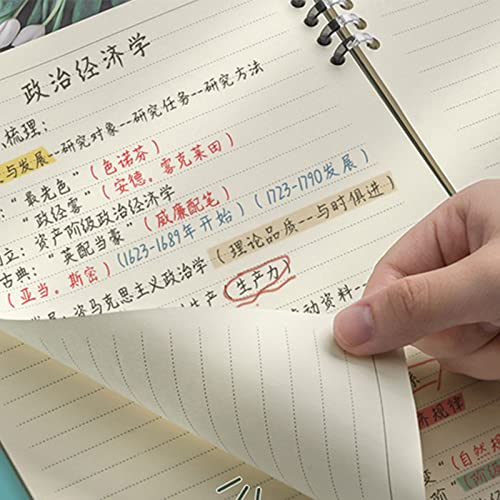 政治经济学
梳理:
与发展--研究对象--研究任务--研究方法
:"最先色"(色诺芬)
:"政经客"(安德。蒙克莱田)
立:资产阶级政治经济学
古典:"英配当豪"(威廉配笔)
(亚当。斯密)(1623-1689年开始)(1723-1790发展)
马克思主义政治学(理论品质--与时俱进)
生产 生产力
动资料--
济规律
(自然规